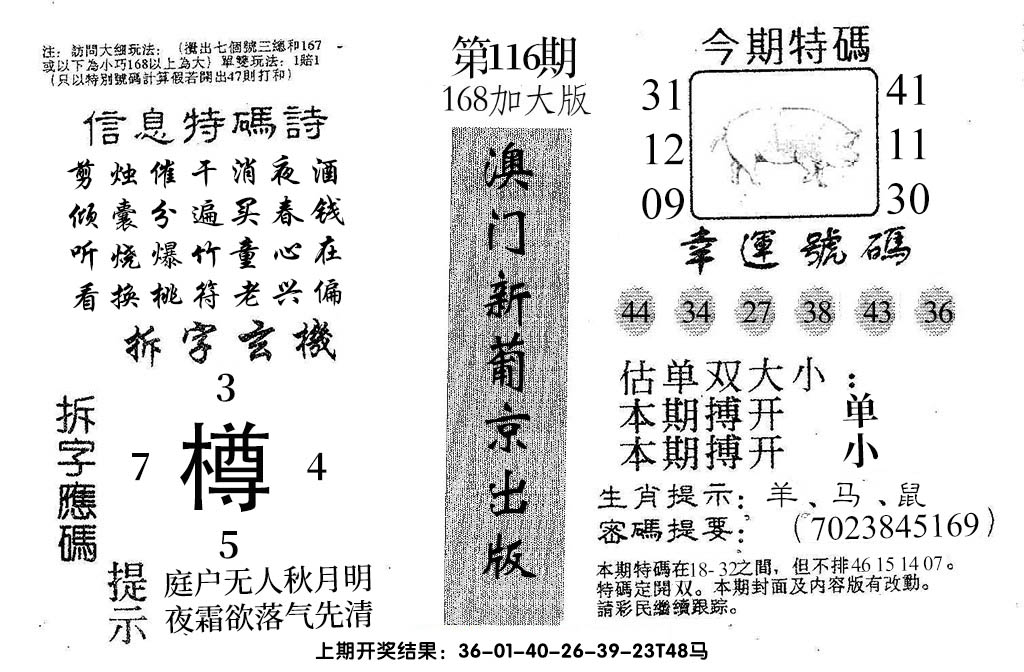 注：訪問大細玩法：（攪出七個號三總和167
或以下為小巧168以上為大）單雙玩法：1賠1
（只以特別號碼計算假若開出47則打和）
信息特碼詩
剪烛催干消夜酒
倾囊分遍买春钱
听烧爆竹童心在
看换桃符老兴偏
拆字玄機
拆字應碼
3
7 樽 4
5
提示
庭户无人秋月明
夜霜欲落气先清
第116期
168加大版
澳门新葡京出版
今期特碼
31 41
12 11
09 30
幸運號碼
44 34 27 38 43 36
估单双大小：
本期搏开 单
本期搏开 小
生肖提示：羊、马、鼠
密碼提要：（7023845169）
本期特碼在18-32之間，但不排46 15 14 07。
特碼定開双。本期封面及内容版有改動。
請彩民繼續跟踪。
上期开奖结果：36-01-40-26-39-23T48马